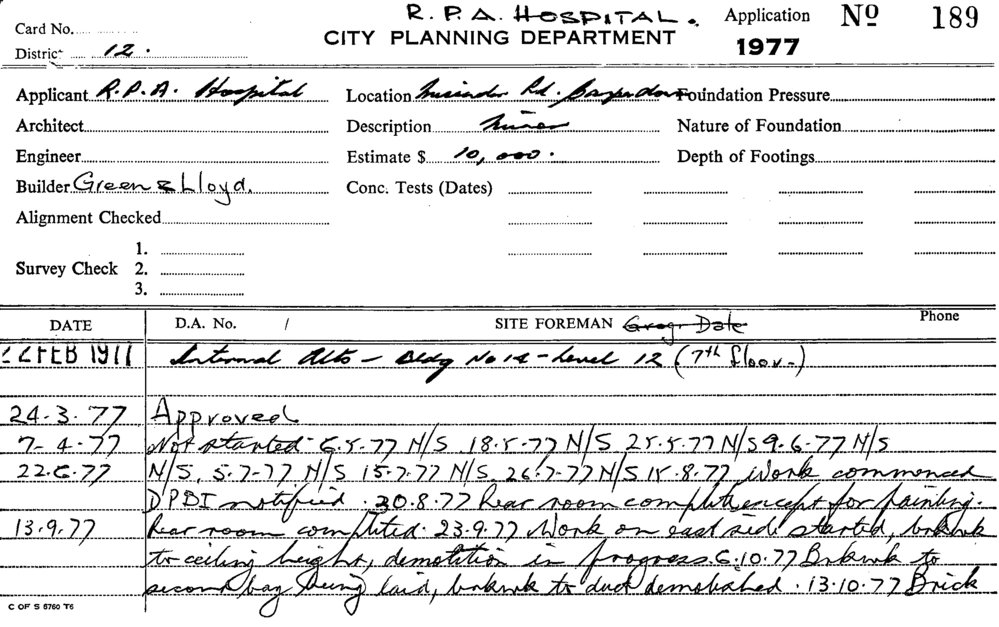 R.P.A. HOSPITAL.
Card No. CITY PLANNING DEPARTMENT Application Nº 189
District 12. 1977
Applicant R.P.A. Hospital Location Missenden Rd. Camperdown Foundation Pressure
Architect Description Minor Nature of Foundation
Engineer Estimate $ 10,000. Depth of Footings
Builder Green & Lloyd. Conc. Tests (Dates)
Alignment Checked
1.
Survey Check 2.
3.
DATE D.A. No. / SITE FOREMAN Phone
22 FEB 1977 Internal Alts - Bldg No 14 - Level 12 (7th floor-)
24-3-77 Approved
7-4-77 Not started 6.5-77 N/S 18-5-77 N/S 25.5.77 N/S 9.-6-77 N/S
22.6.77 N/S, 5.7-77 N/S 15-7.77 N/S, 26.7-77 N/S 15.8.77 Work commenced
DPBI notified. 30.8.77 Rear room complete except for painting.
13.9.77 Rear room completed. 23.9.77 Work on east side started, brkwk
to ceiling height, demolition in progress. 6.10.77 Brkwk to
second bay being laid, brkwk to duct demolished. 13.10.77 Brick
C OF S 5760 T6